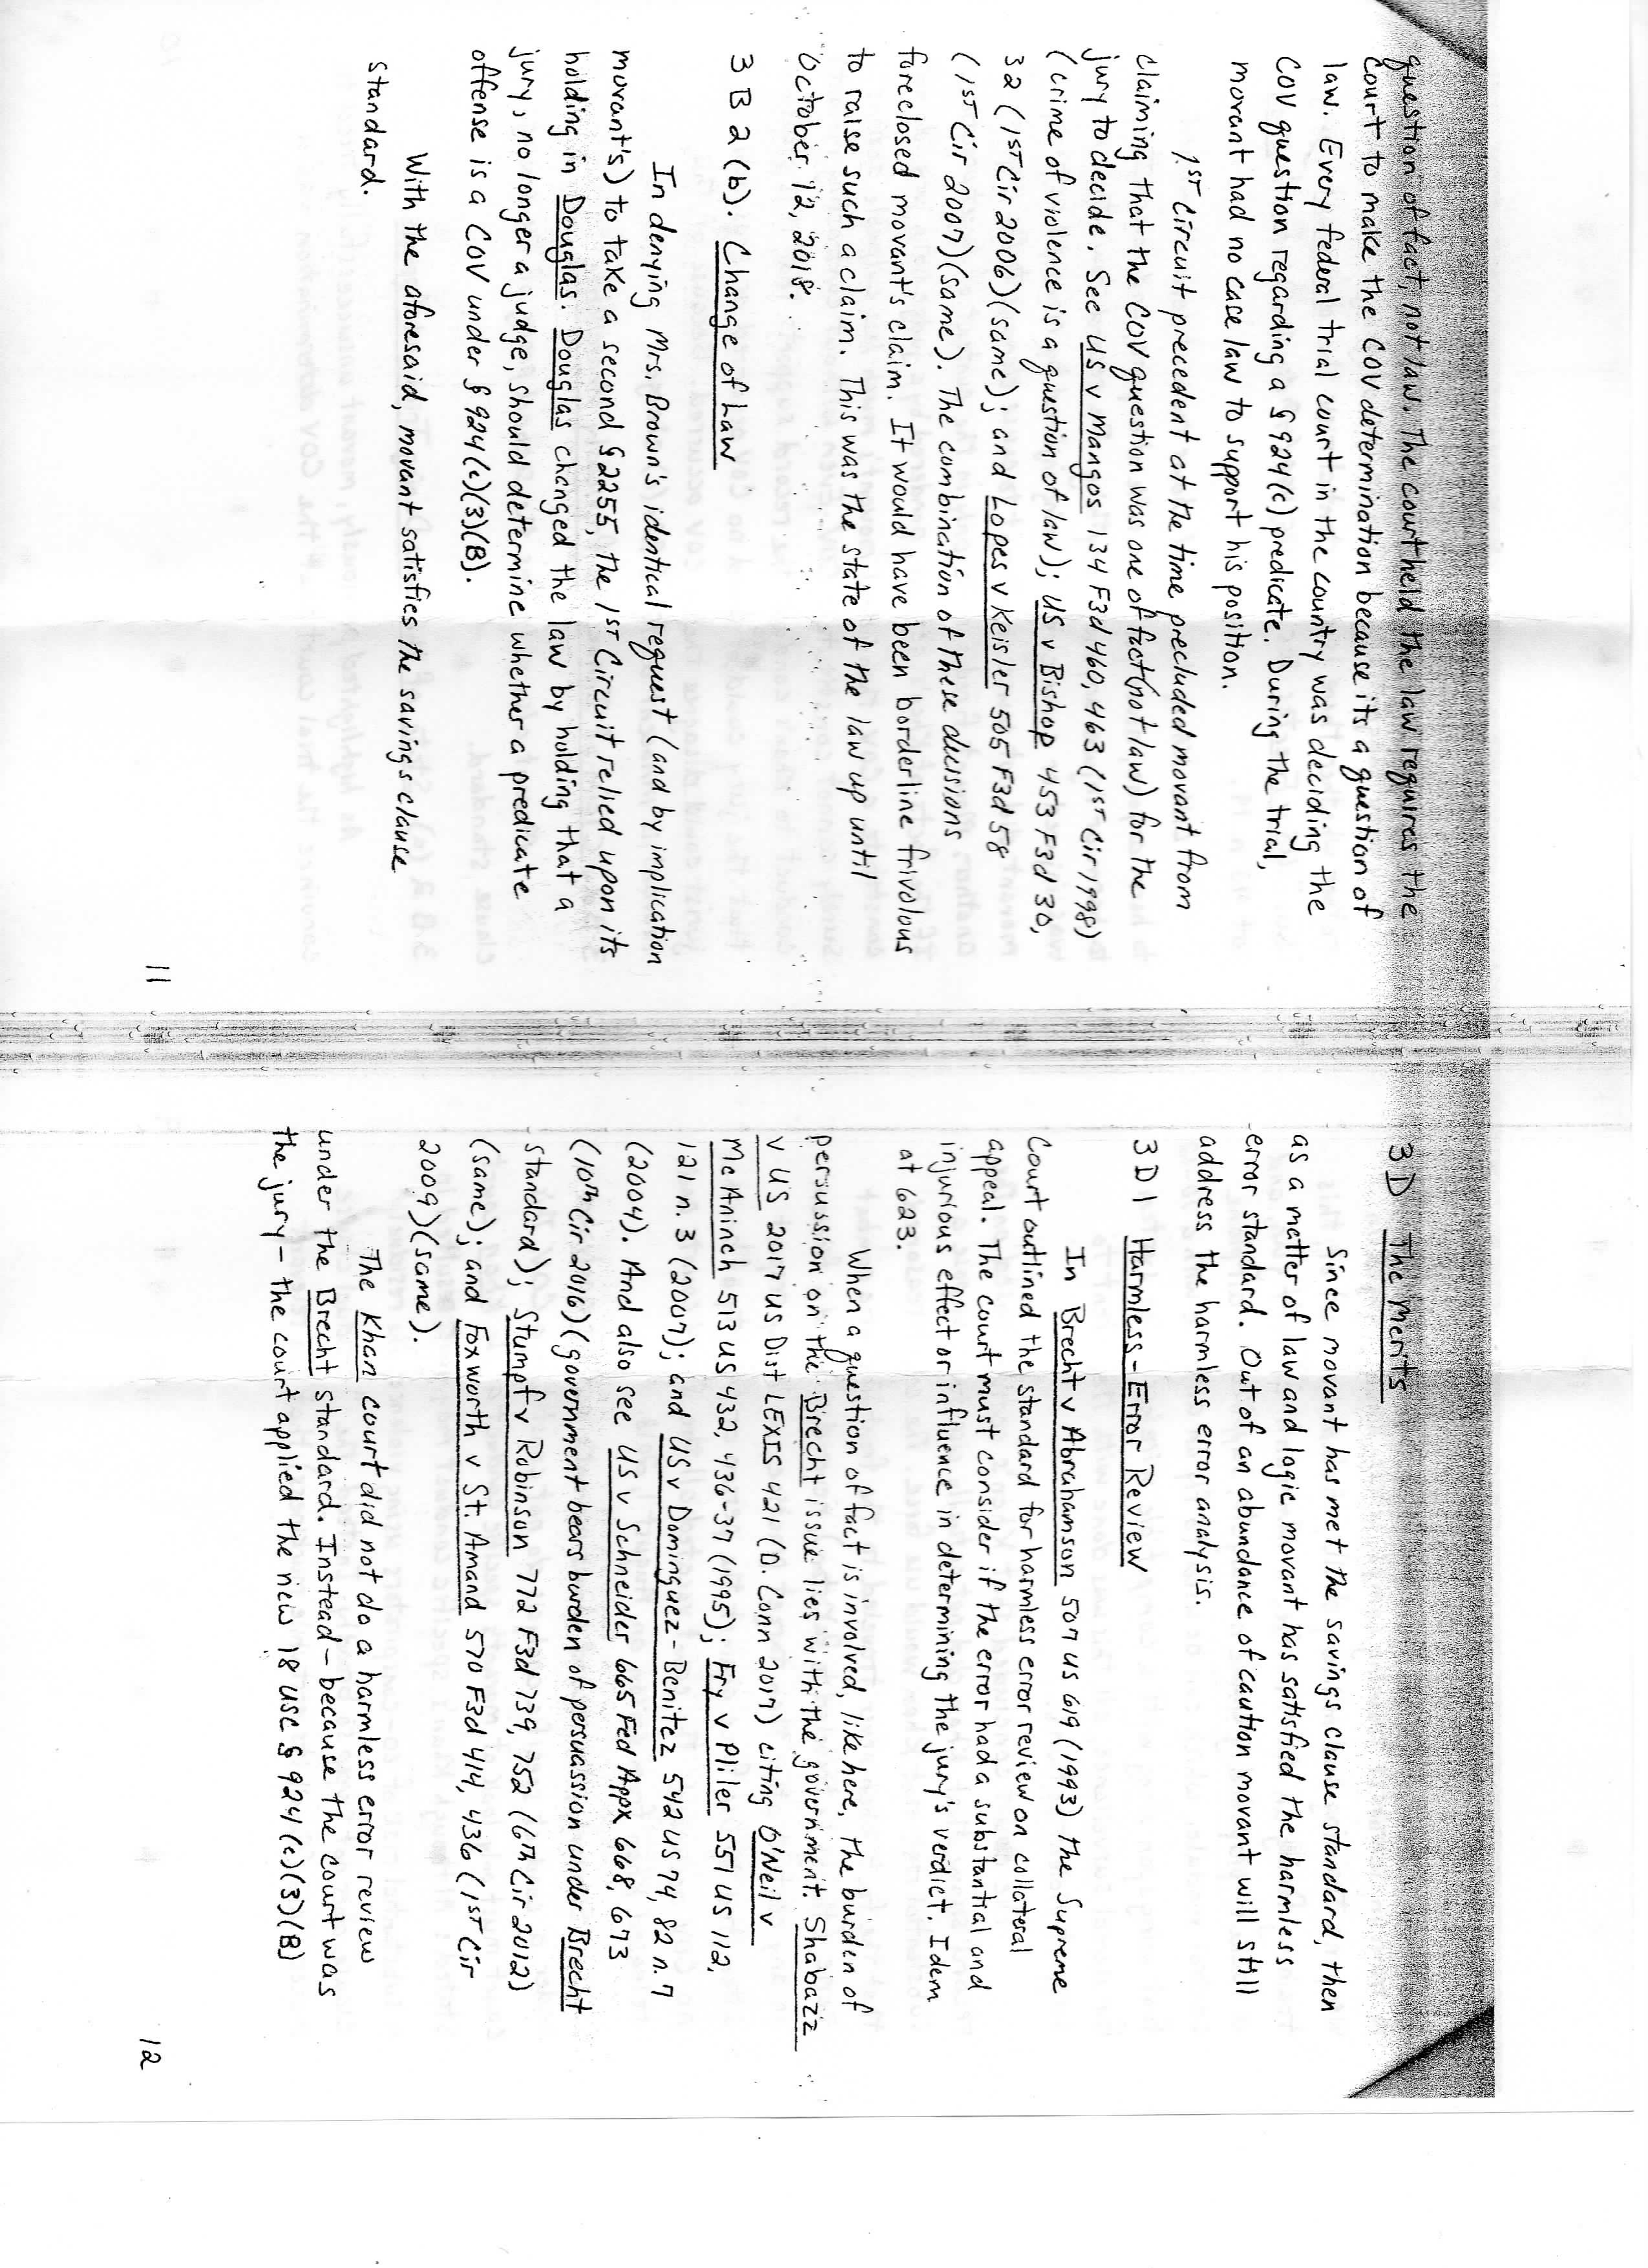 question of fact, not law. The court held the law requires the
court to make the COV determination because its a question of
law. Every federal trial court in the country was deciding the
COV question regarding a § 924(c) predicate. During the trial,
movant had no case law to support his position.
1ST Circuit precedent at the time precluded movant from
claiming that the COV question was one of fact (not law) for the
jury to decide. See US v Mangos 134 F3d 460, 463 (1ST Cir 1998)
(crime of violence is a question of law); US v Bishop 453 F3d 30,
32 (1ST Cir 2006)(same); and Lopes v Keisler 505 F3d 58
(1ST Cir 2007)(same). The combination of these decisions
foreclosed movant's claim. It would have been borderline frivolous
to raise such a claim. This was the state of the law up until
October 12, 2018.
3 B 2 (b). Change of Law
In denying Mrs. Brown's identical request (and by implication
movant's) to take a second § 2255, the 1ST Circuit relied upon its
holding in Douglas. Douglas changed the law by holding that a
jury, no longer a judge, should determine whether a predicate
offense is a COV under § 924(c)(3)(B).
With the aforesaid, movant satisfies the savings clause
standard.
11
3D The Merits
Since movant has met the savings clause standard, then
as a matter of law and logic movant has satisfied the harmless
error standard. Out of an abundance of caution movant will still
address the harmless error analysis.
3 D 1 Harmless-Error Review
In Brecht v Abrahamson 507 US 619 (1993) the Supreme
Court outlined the standard for harmless error review on collateral
appeal. The court must consider if the error had a substantial and
injurious effect or influence in determining the jury's verdict. Idem
at 623.
When a question of fact is involved, like here, the burden of
persussion on the Brecht issue lies with the government. Shabazz
v US 2017 US Dist LEXIS 421 (D. Conn 2017) citing O'Neil v
McAninch 513 US 432, 436-37 (1995); Fry v Pliler 551 US 112,
121 n. 3 (2007); and US v Dominguez-Benitez 542 US 74, 82 n. 7
(2004). And also see US v Schneider 665 Fed Appx 668, 673
(10th Cir 2016)(government bears burden of persuassion under Brecht
standard); Stumpf v Robinson 772 F3d 739, 752 (6th Cir 2012)
(same); and Foxworth v St. Amand 570 F3d 414, 436 (1ST Cir
2009)(same).
The Khan court did not do a harmless error review
under the Brecht standard. Instead - because the court was
the jury - the court applied the new 18 USC § 924(c)(3)(B)
12